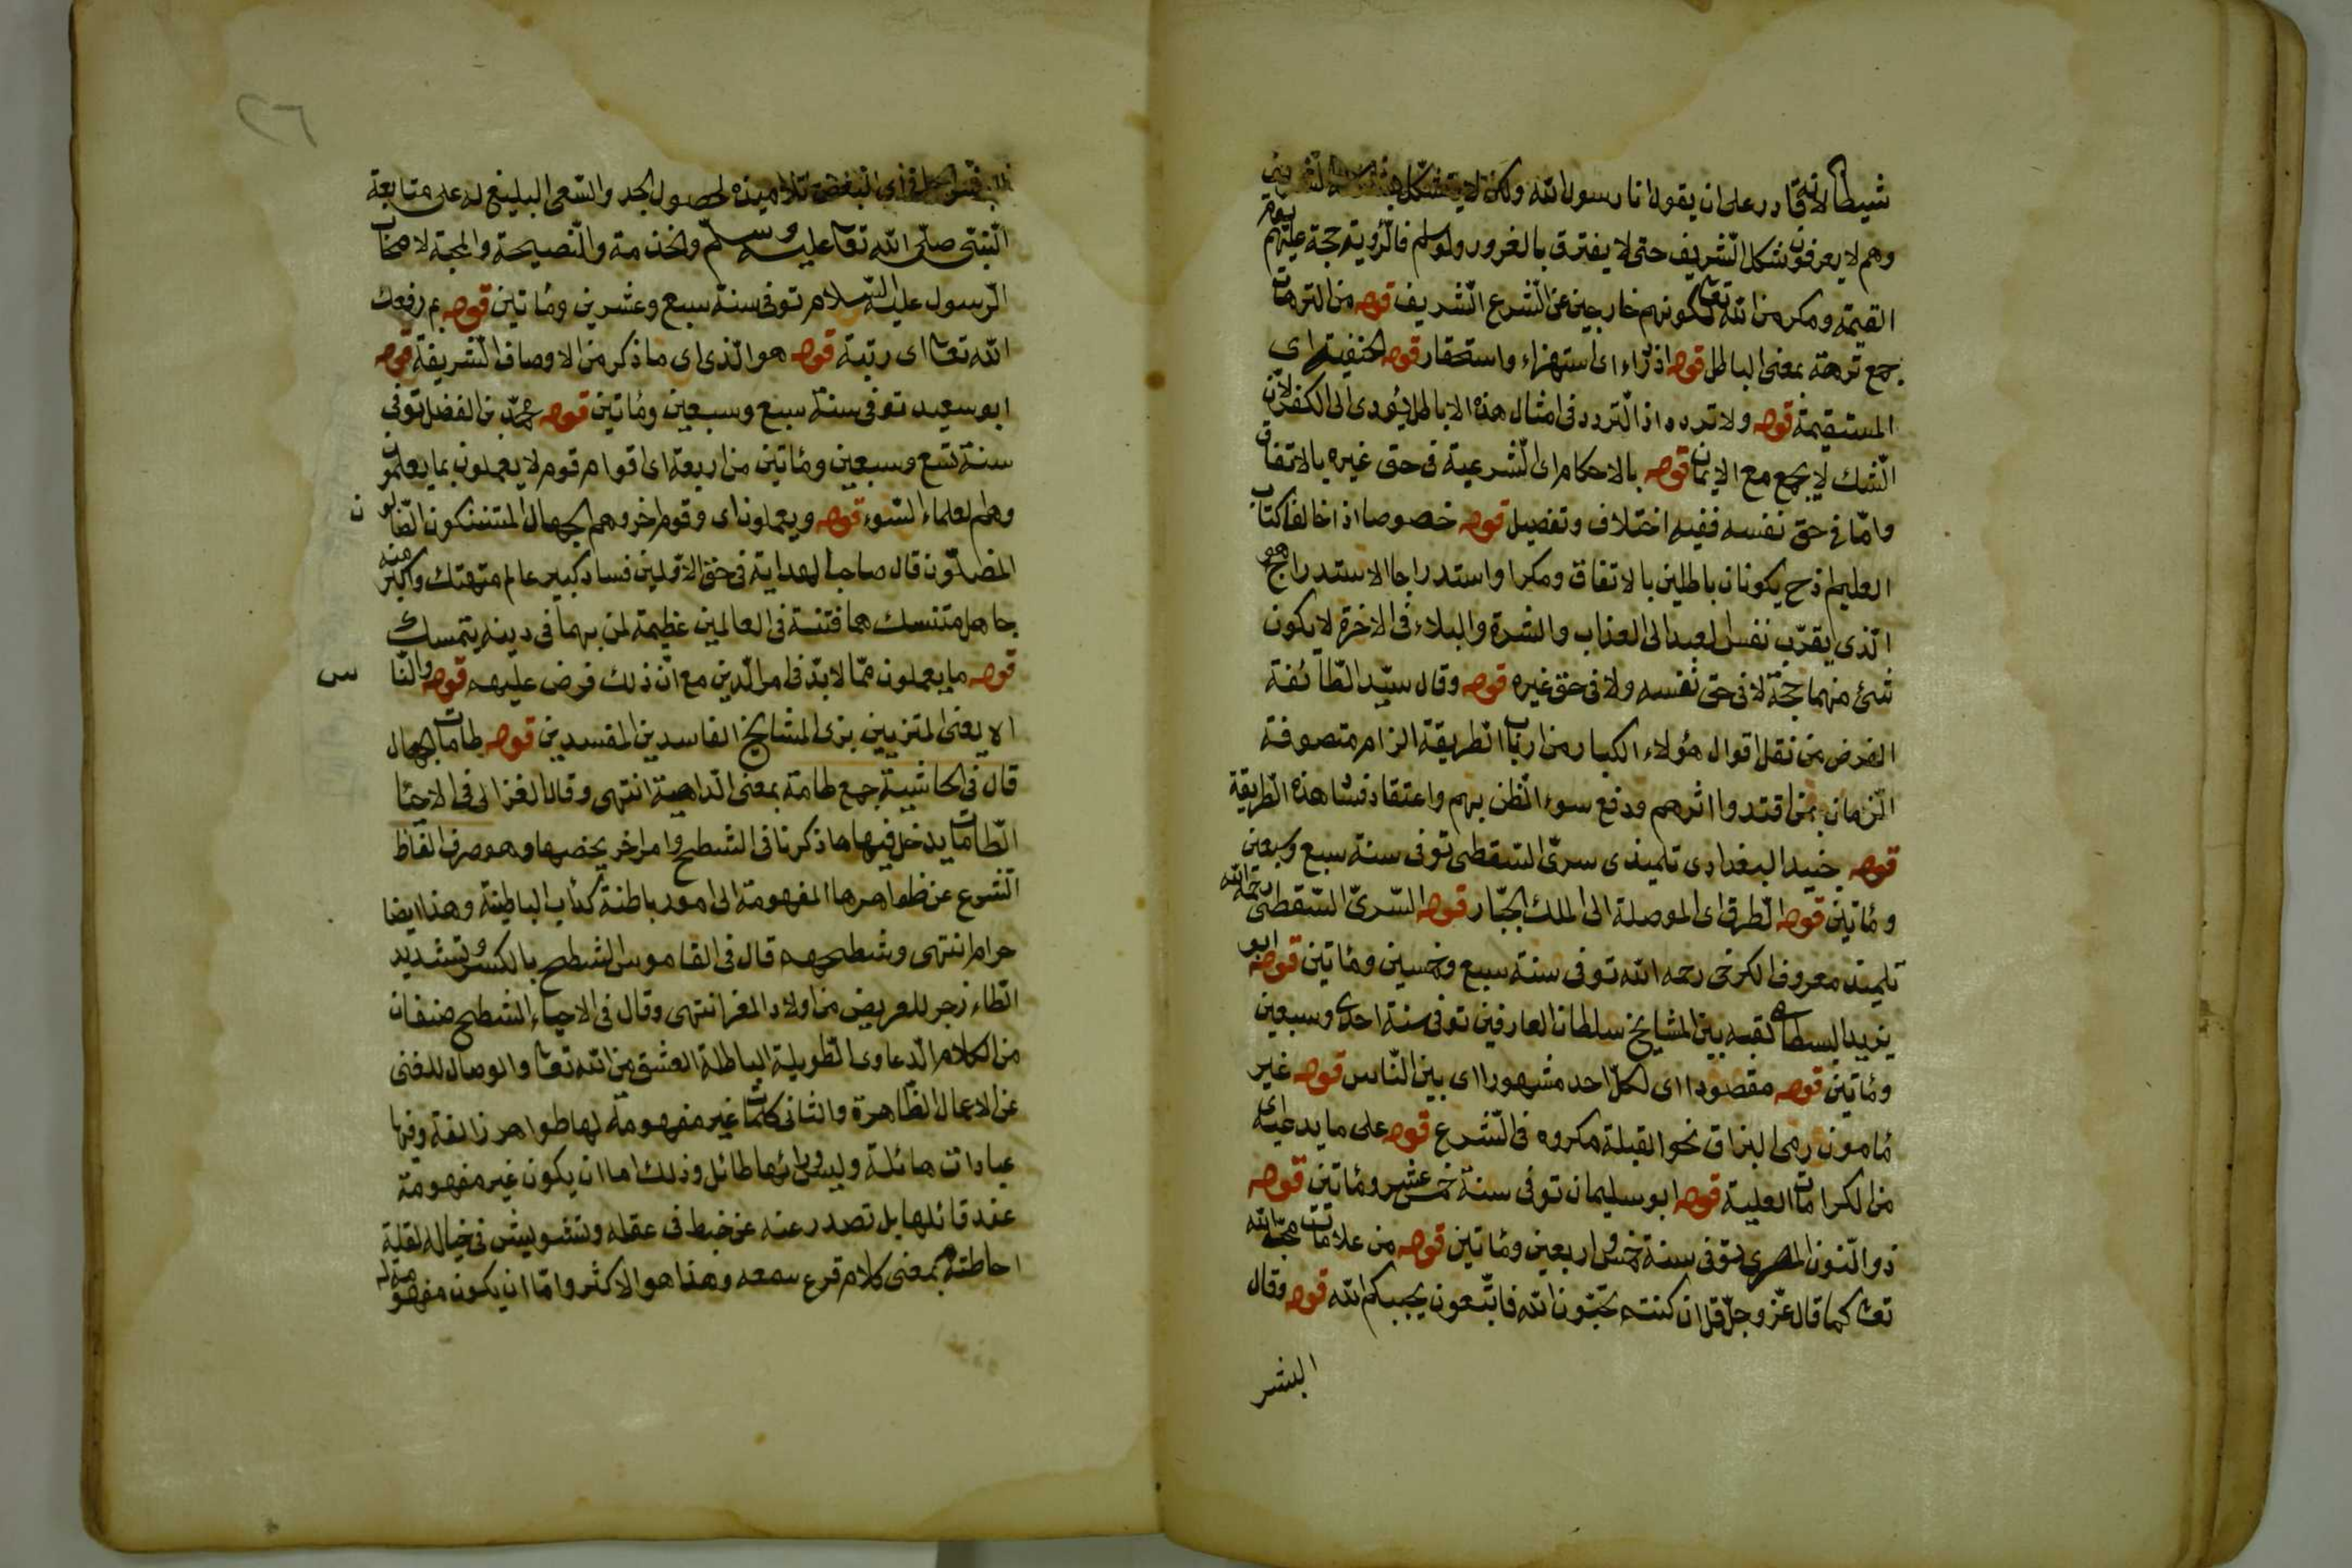 شيطانا لانه قادر على ان يقول انا رسول الله ولكن لا يتشكل
وهم لا يعرفون شكل الشريف حتى لا يفترق بالغرور ولو سلم فالرؤية حجة عليهم يوم
القيمة ومكر من الله تعا لكونهم خارجين عن الشرع الشريف قوله من الترهات
جمع ترهة بمعنى الباطل قوله ازراء اى استهزاء واستحقار قوله الحنفية اى
المستقيمة قوله ولا تردد اذ التردد فى امثال هذه الاباطل يؤدى الى الكفر لان
الشك لا يجمع مع الايمان قوله بالاحكام اى الشرعية فى حق غيره بالاتفاق
واما فى حق نفسه ففيه اختلاف وتفصيل قوله خصوصا اذا خالفا كتاب
العليم اذ ح يكونان باطلين بالاتفاق ومكرا واستدراجا الاستدراج هو
الذى يقرب نفس لعبد الى العذاب والشدة والبلاء فى الاخرة لا يكون
شئ منهما حجة لا فى حق نفسه ولا فى حق غيره قوله وقال سيد الطائفة
الغرض من نقل اقوال هؤلاء الكبار من ارباب الطريقة الزام متصوفة
الزمان بمن اقتدوا اثرهم ودفع سوء الظن بهم واعتقاد فساد هذه الطريقة
قوله جنيد البغدادى تلميذى سرى السقطى توفى سنة سبع وسبعين
ومأتين قوله الطرق اى الموصلة الى الملك الجبار قوله السرى السقطى رحمه الله
تلميذ معروف الكرخى رحمه الله توفى سنة سبع وخمسين ومأتين قوله ابو
يزيد البسطامى لقبه بين المشايخ سلطان العارفين توفى سنة احدى وسبعين
ومأتين قوله مقصودا اى لكل احد مشهورا اى بين الناس قوله غير
مأمون رمى البزاق نحو القبلة مكروه فى الشرع قوله على ما يدعيه اى
من الكرامات العلية قوله ابو سليمان توفى سنة خمس عشر ومأتين قوله
ذو النون المصرى توفى سنة خمس واربعين ومأتين قوله من علامات محبة الله
تعا كما قال عز وجل قل ان كنتم تحبون الله فاتبعون يحببكم الله قوله وقال
البشر
٢٦
تلاميذه لحصول الجد والسعى البليغ له على متابعة
النبى صلى الله تعا عليه وسلم والخذمة والنصيحة والمحبة لاصحاب
الرسول عليه السلام توفى سنة سبع وعشرين ومأتين قوله بم رفعك
الله تعا اى رتبة قوله هو الذى اى ما ذكر من الاوصاف الشريفة قوله
ابو سعيد توفى سنة سبع وسبعين ومأتين قوله محمد بن الفضل توفى
سنة تسع وسبعين ومأتين من اربعة اى اقوام قوم لا يعملون بما يعلمون
وهم لعلماء السوء قوله ويعملون اى وقوم اخر وهم الجهال المتنسكون الضالون
المضلون قال صاحب الهداية فى حق الاولين فساد كبير عالم متهتك واكبر منه
جاهل متنسك هما فتنة فى العالمين عظيمة لمن بهما فى دينه يتمسك
قوله ما يعملون مما لابد فى امر الدين مع ان ذلك فرض عليهم قوله والناس
الا يعنى المتزيين بزى المشايخ الفاسدين المفسدين قوله طامات الجهال
قال فى الحاشية جمع طامة بمعنى الداهية انتهى وقال الغزالى فى الاحيا
الطامات يدخل فيها ما ذكرنا فى الشطح وامر اخر يخصها وهو صرف الفاظ
الشرع عن ظواهرها المفهومة الى امور باطنة كدأب الباطنة وهذا ايضا
حرام انتهى وشطحهم قال فى القاموس الشطح بالكسر وتشديد
الطاء زجر للعريض من اولاد المعز انتهى وقال فى الاحياء الشطح صنفان
من الكلام الدعاوى الطويلة الباطلة العشق من الله تعا والوصال للغنى
عن الاعمال الظاهرة والثانى كلمات غير مفهومة لها ظواهر زائفة وفيها
عبادات هائلة وليس ورائها طائل وذلك اما ان يكون غير مفهومة
عند قائلها بل تصدر عنه عن خبط فى عقله وتشويش فى خياله لقلة
احاطته بمعنى كلام قرع سمعه وهذا هو الاكثر واما ان يكون مفهومة له